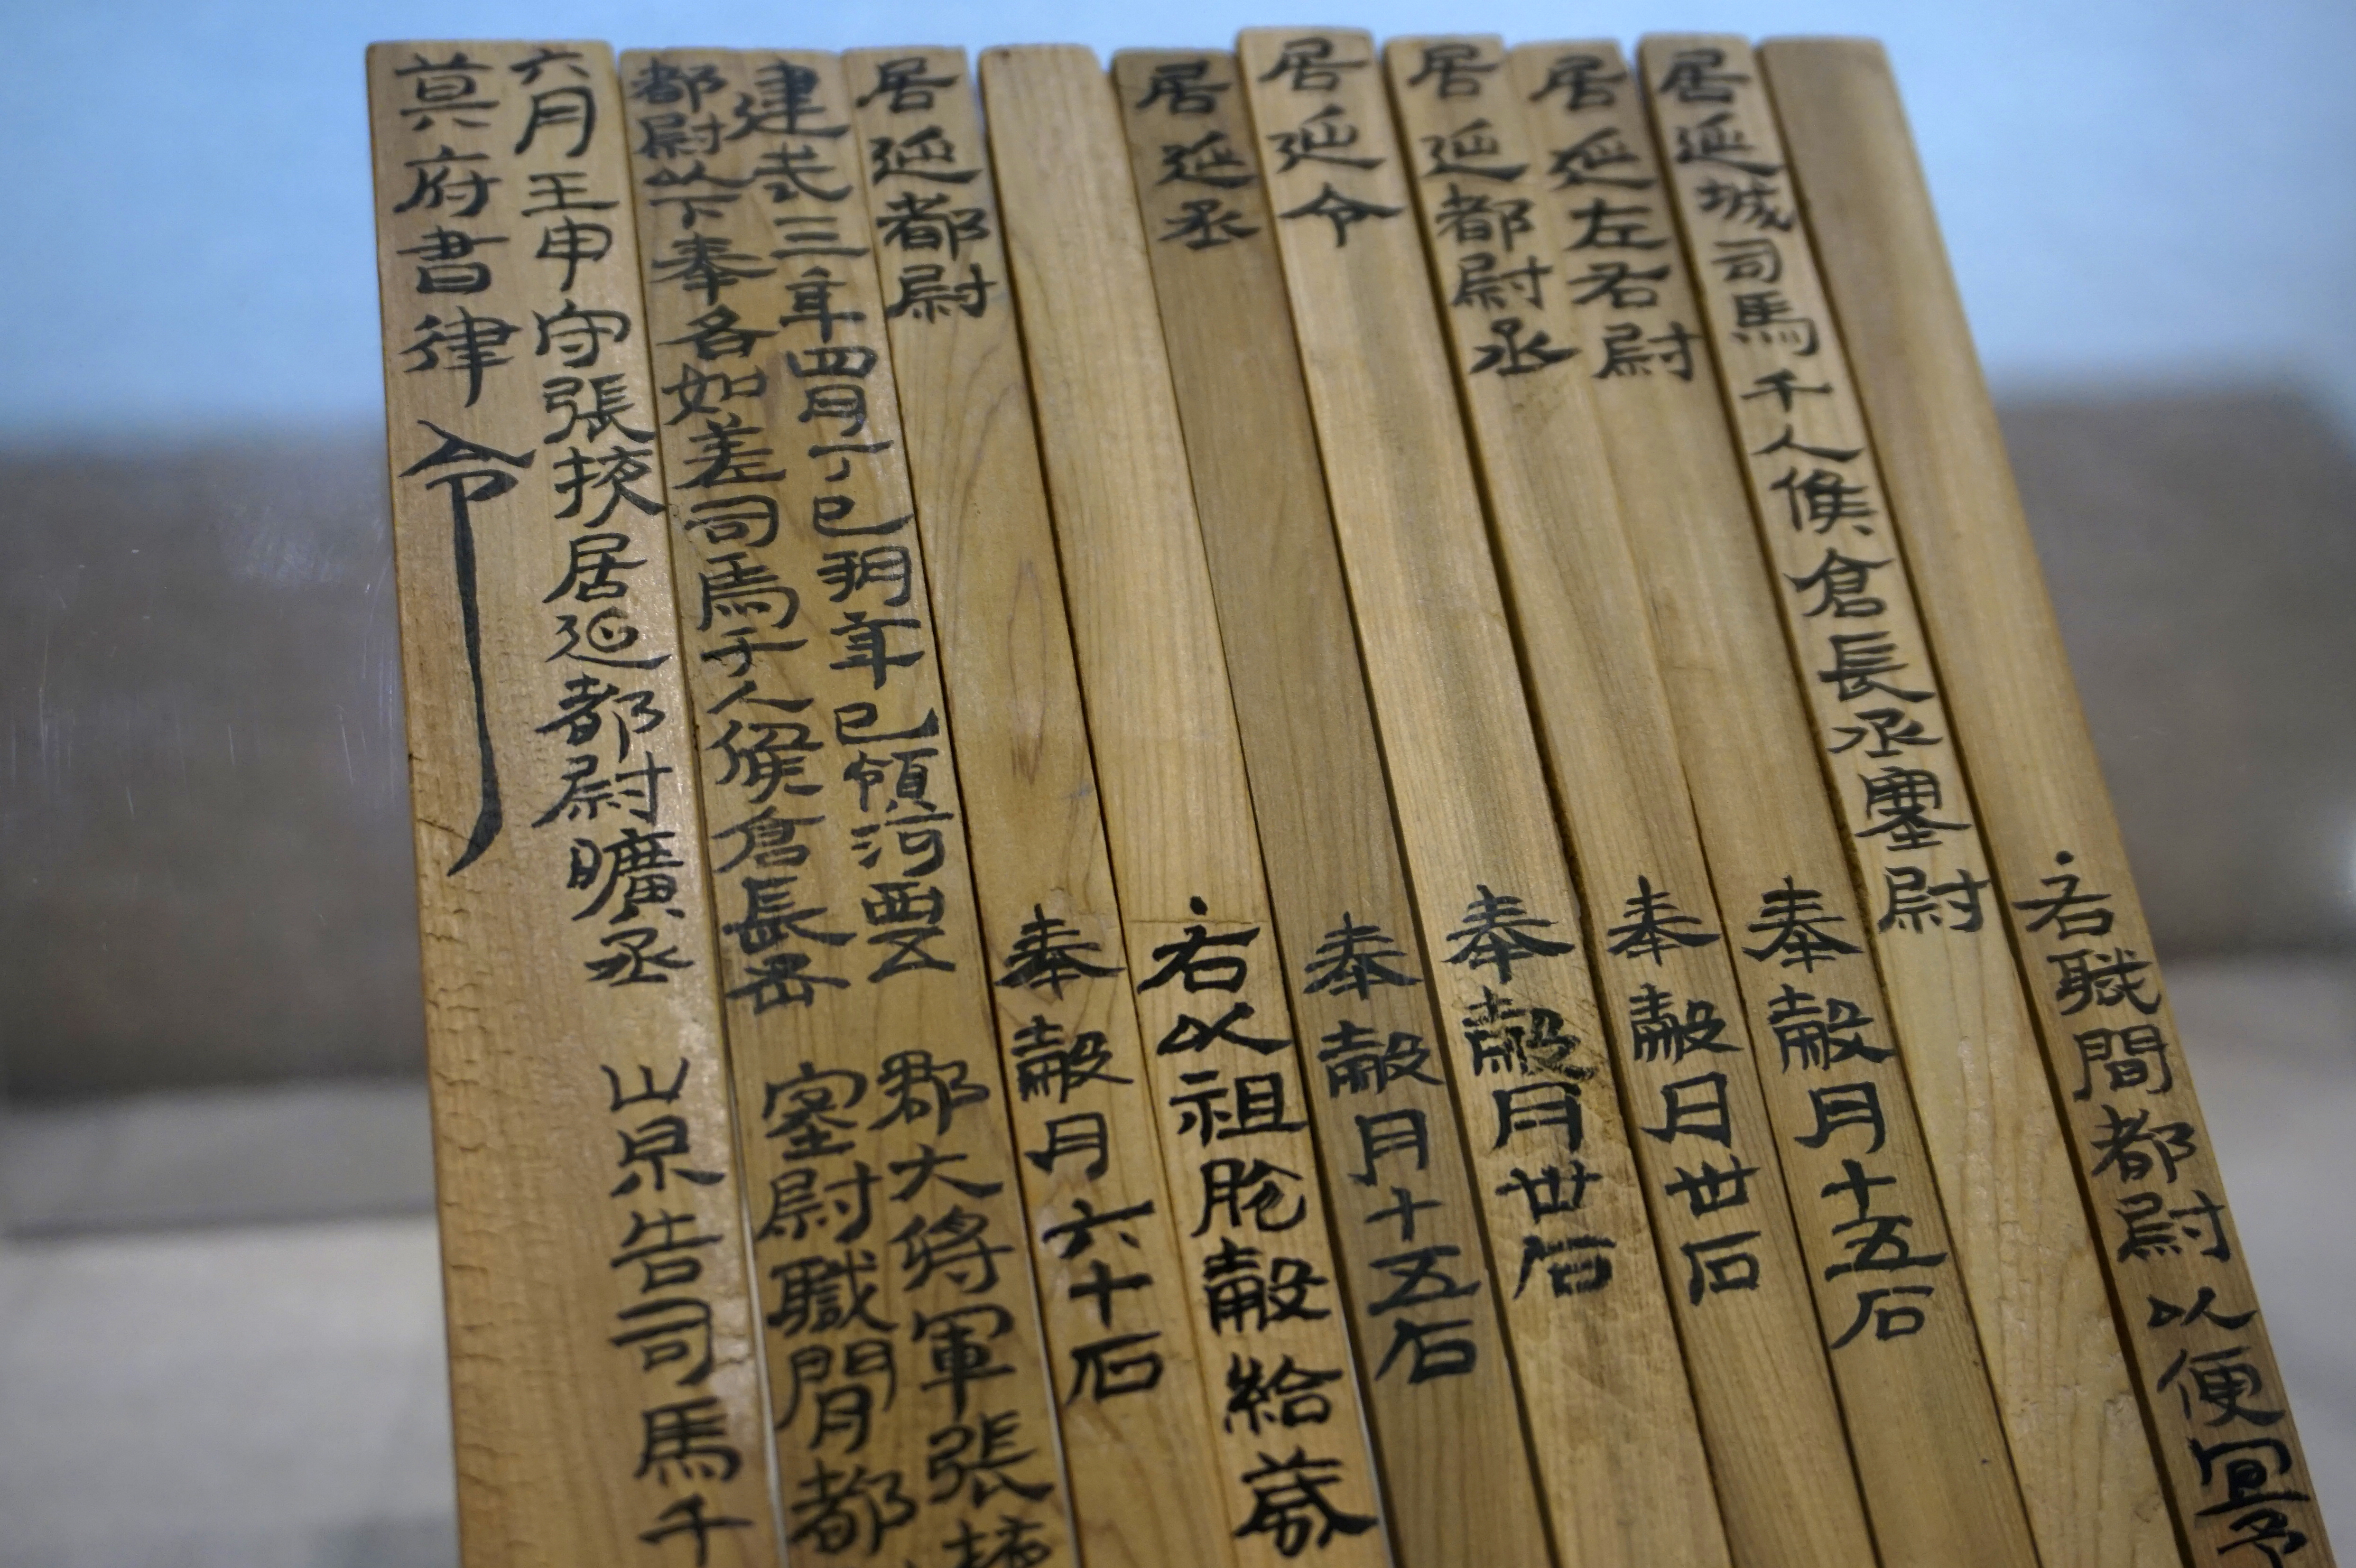 ·右職間都尉以便宜予
居延城司馬千人候倉長丞塞尉
居延左右尉 奉穀月十五石
居延都尉丞 奉穀月卅石
居延令 奉穀月卅石
居延丞 奉穀月十五石
·右以祖脫穀給歲
居延都尉 奉穀月六十石
建武三年四月丁巳朔辛巳領河西五郡大將軍張掖
都尉以下奉各如差司馬千人候倉長丞塞尉職間都
六月壬申守張掖居延都尉曠丞崇告司馬千
莫府書律令